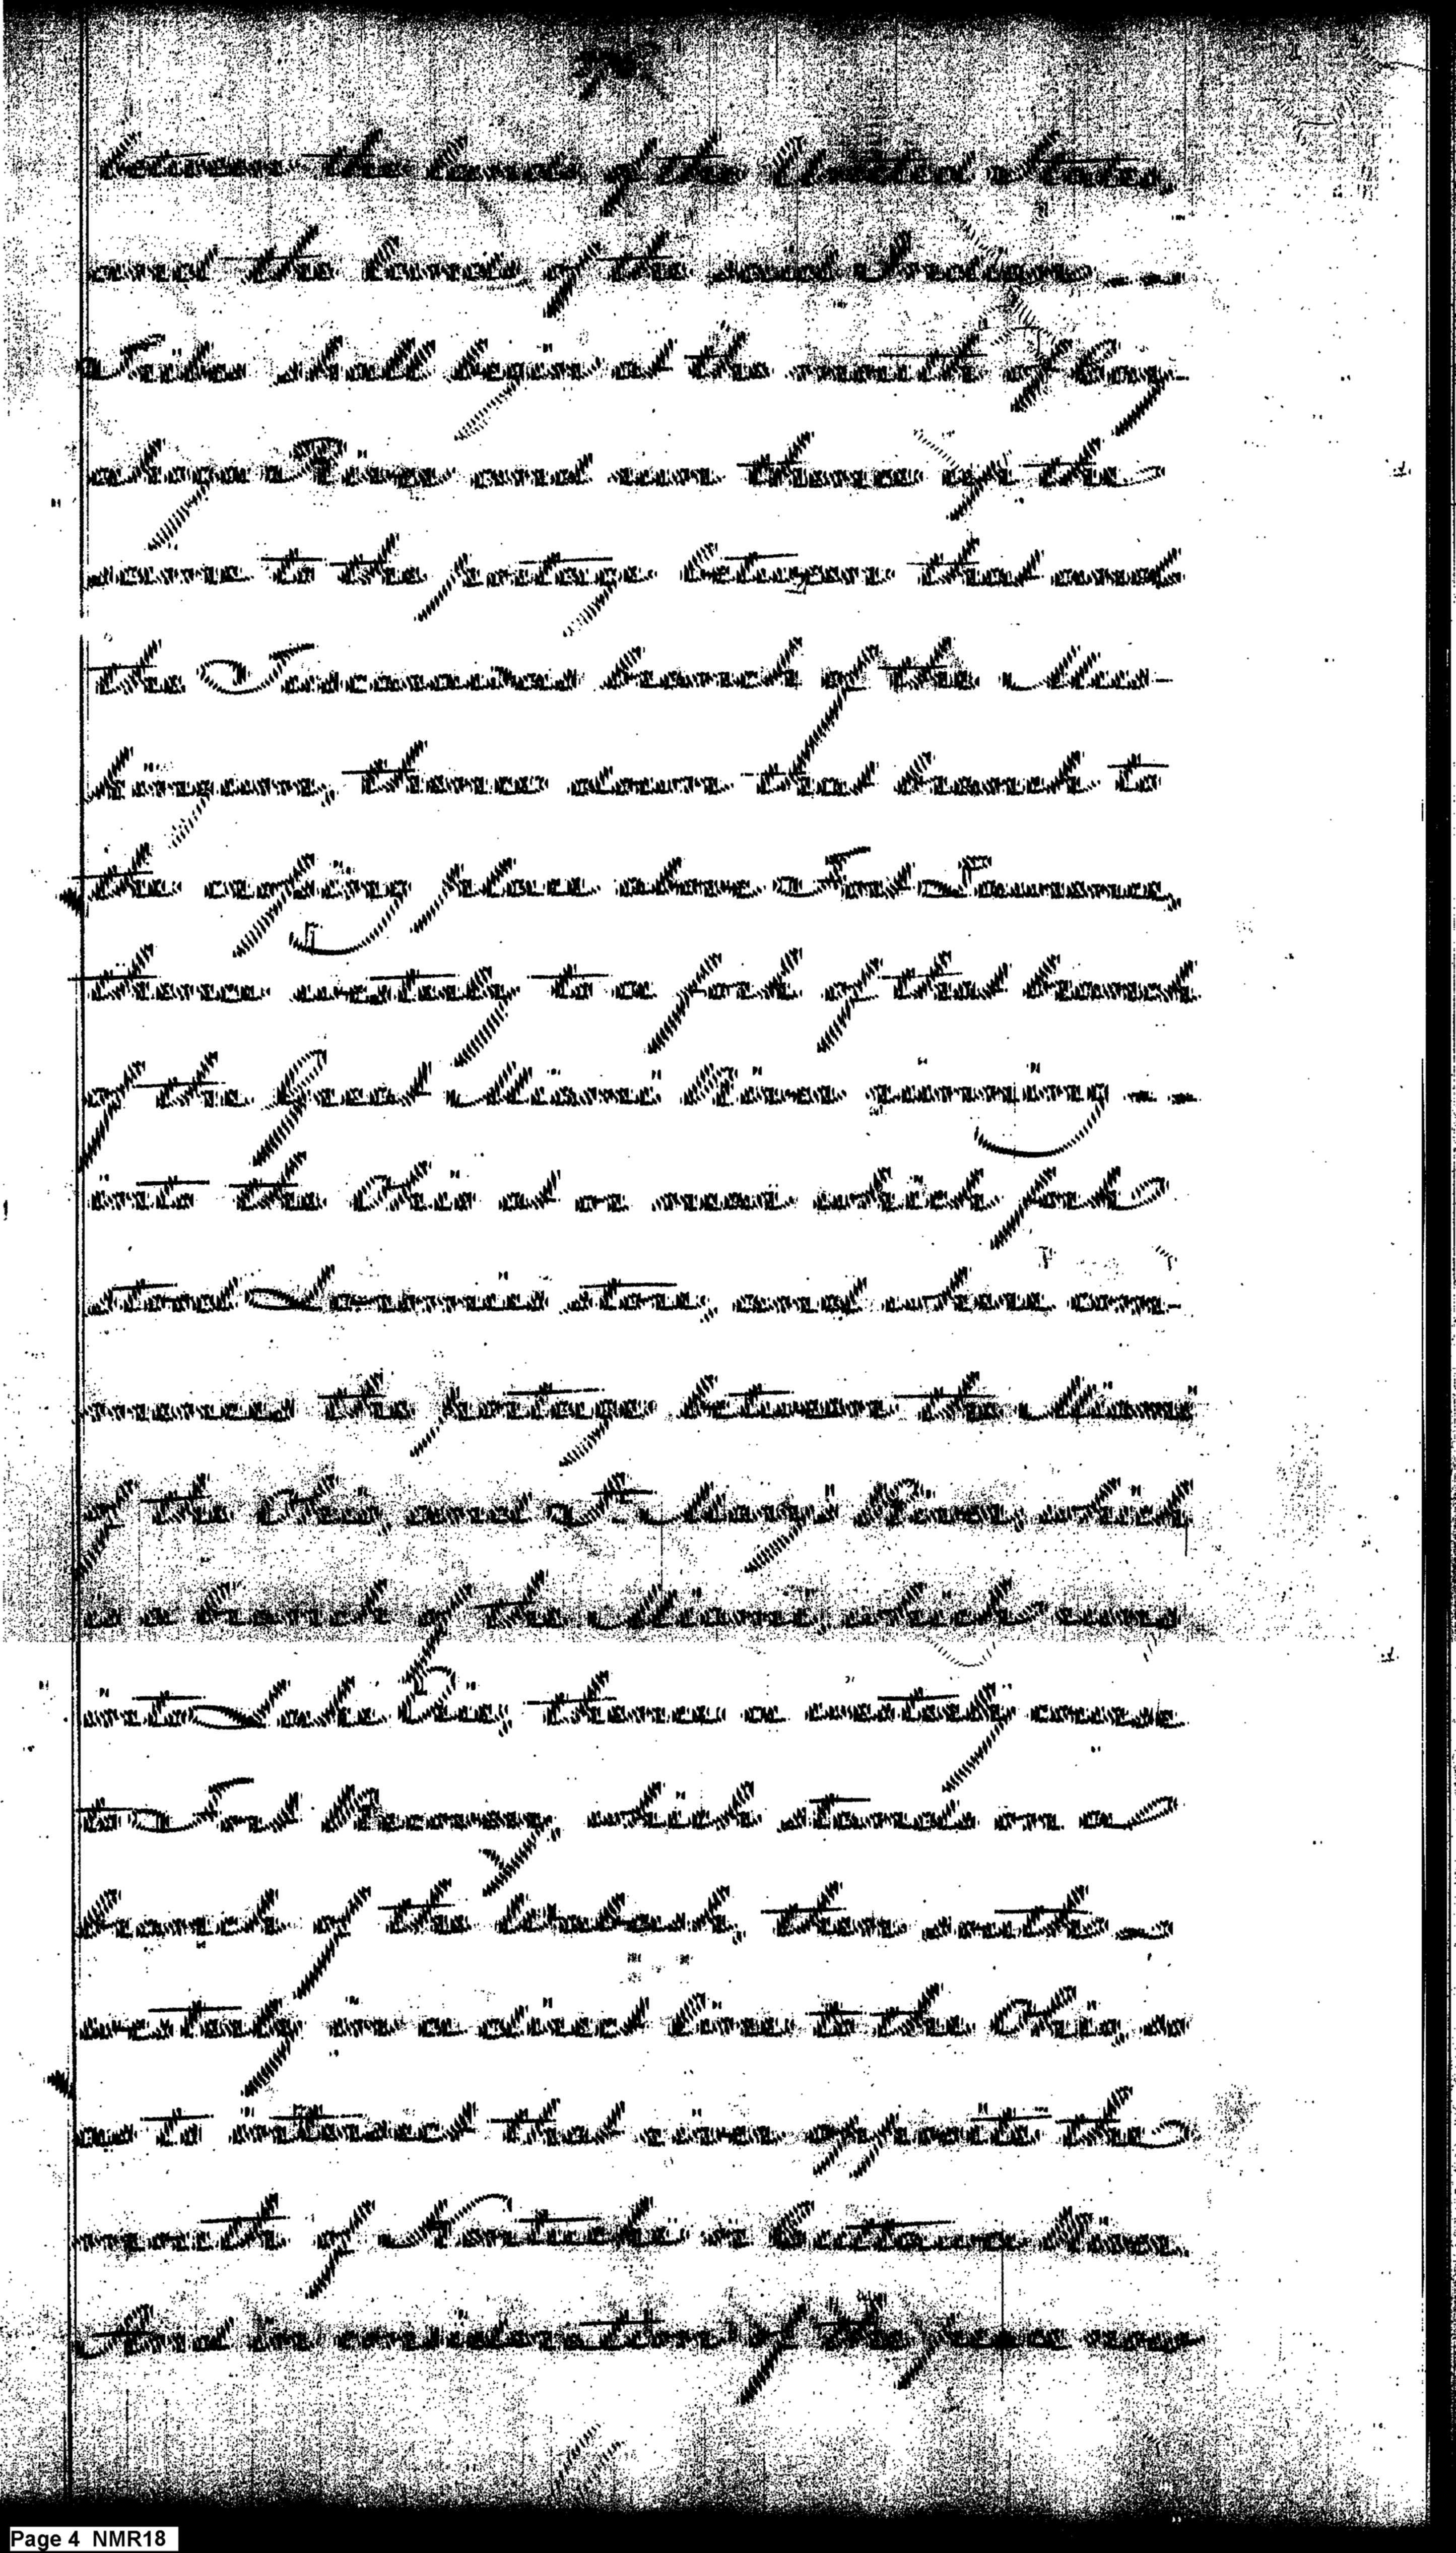 between the lands of the United States,
and the lands of the said Indian
Tribes shall begin at the mouth of Cay-
ahoga River and run thence up the
same to the portage between that and
the Tuscarawas branch of the Mus-
kingum, thence down that branch to
the crossing place above Fort Lawrence,
thence westerly to a fork of that branch
of the Great Miami River running
into the Ohio at or near which fork
stood Loromie's store, and where com-
mences the portage between the Miami
of the Ohio, and St. Mary's River, which
is a branch of the Miami, which runs
into Lake Erie; thence a westerly course
to Fort Recovery, which stands on a
branch of the Wabash, then south-
westerly in a direct line to the Ohio, so
as to intersect that river opposite the
mouth of Kentucke or Cuttawa River.
And in consideration of the peace now
Page 4 NMR18